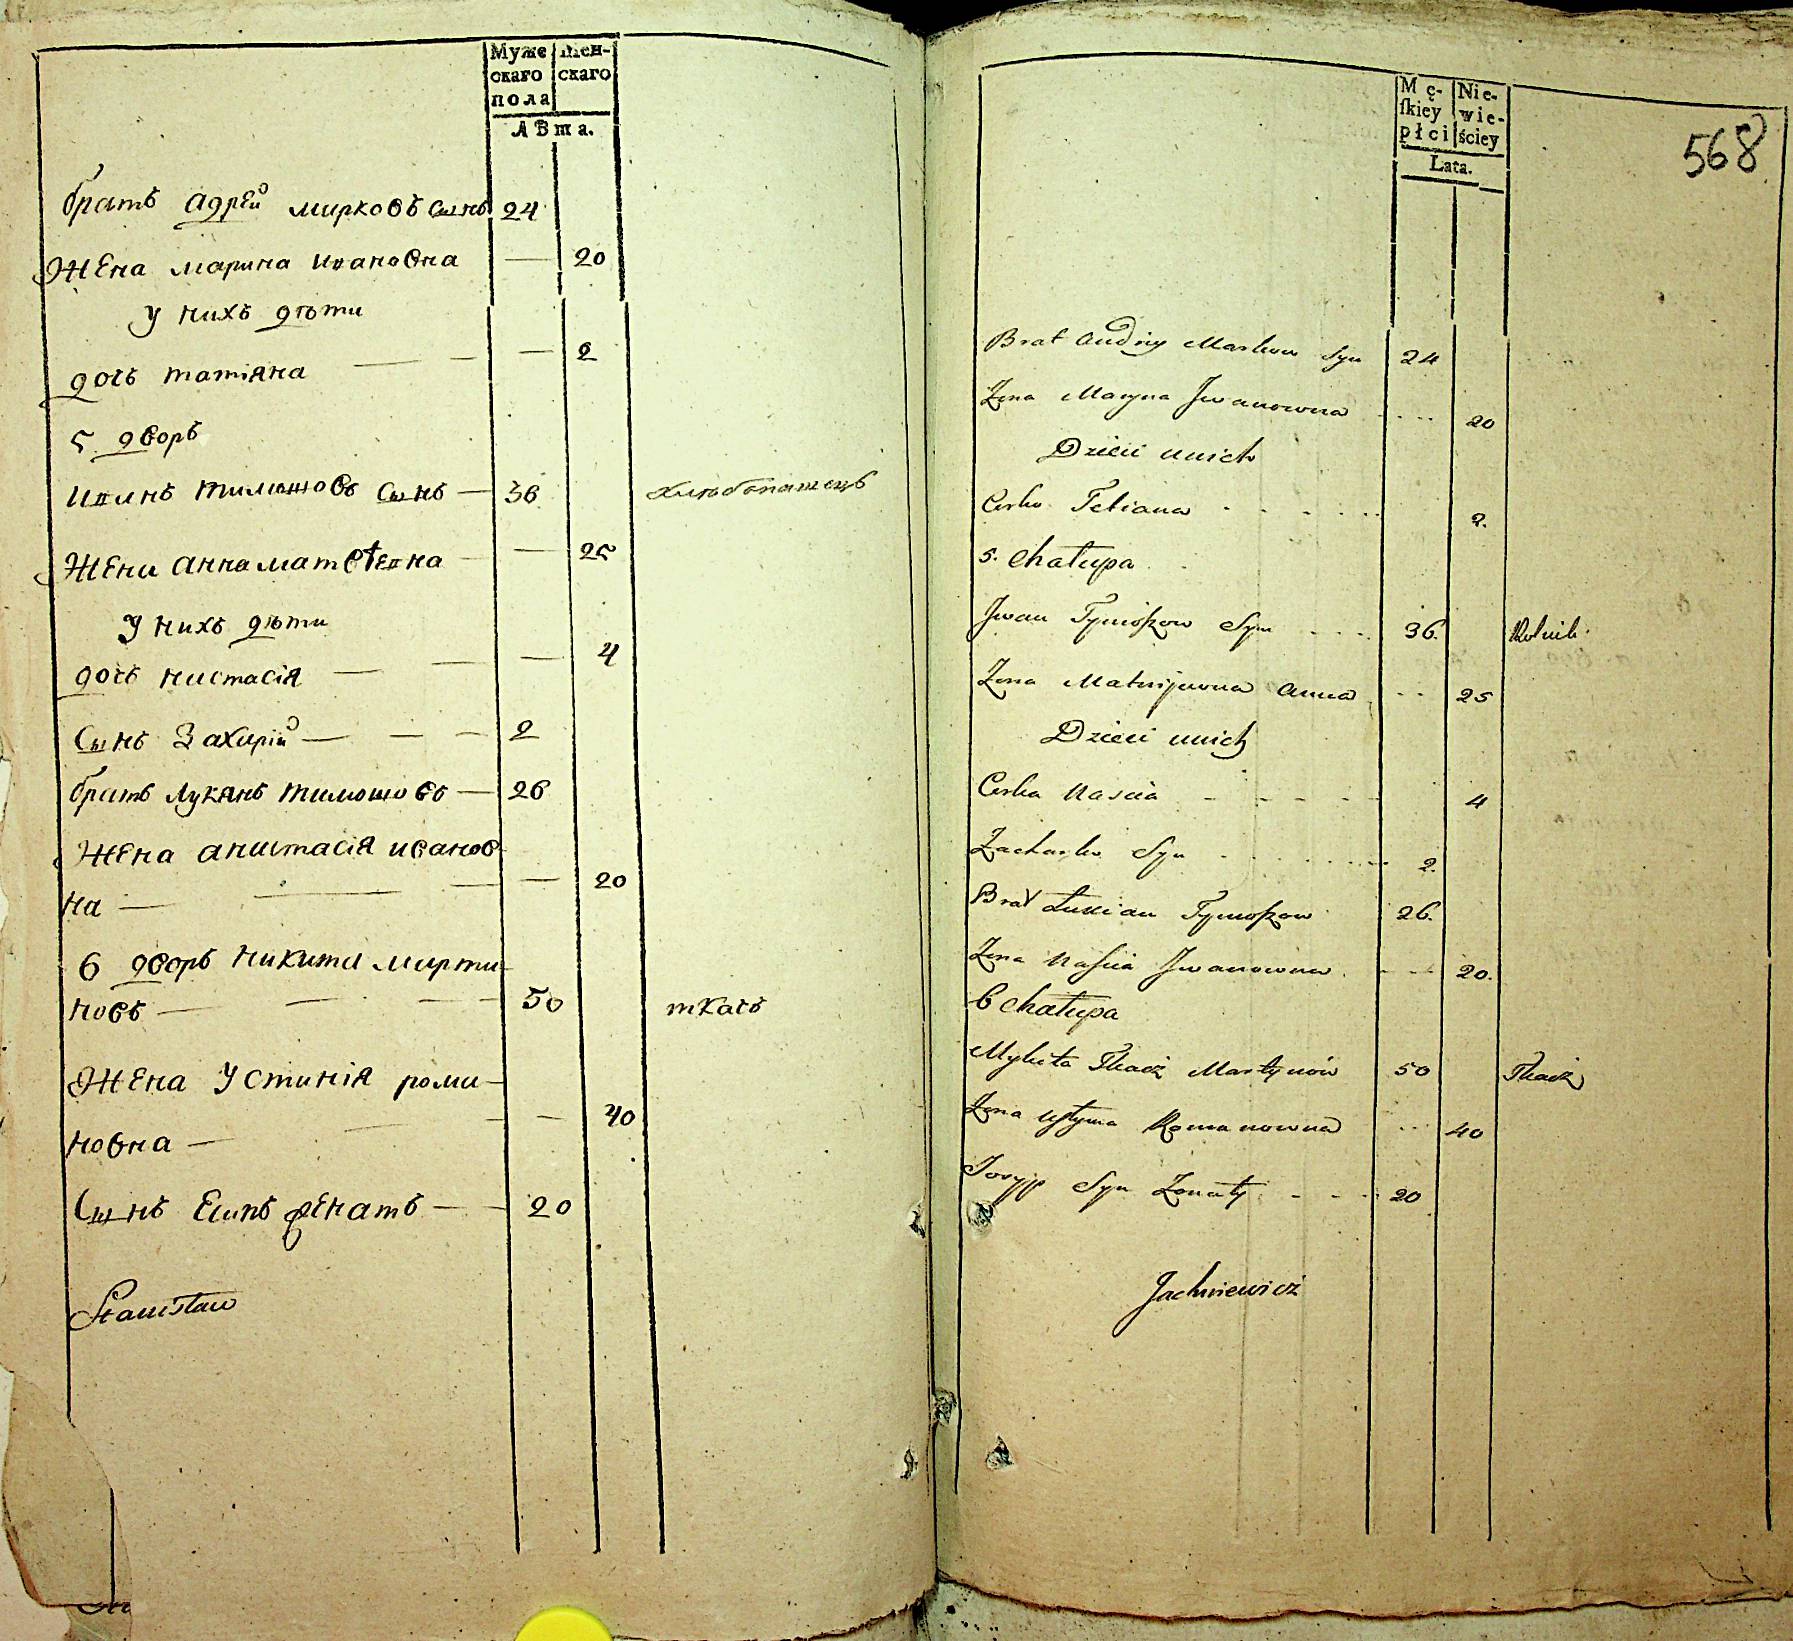 Муже Жен-
скаго скаго
пола
лѣта.
братъ адрей марковъ сынъ 24
жена марина ивановна — 20
у нихъ дѣти
дочь татіяна — — 2
5 дворъ
иванъ тимошовъ сынъ — 36 хлѣбопашецъ
жена анна матвѣевна — 25
у нихъ дѣти
дочь настасія — — 4
сынъ Захарій — — — 2
братъ лукянъ тимошовъ — 26
жена анастасія иванов-
на — — — 20
6 дворъ никита марти-
новъ — — — 50 ткачь
жена устинія рома-
новна — — — 40
сынъ Есипъ женатъ — — 20
Stanisław
568
Mę- Nie-
ſkiey wie-
płci ściey
Lata.
Brat Andriy Markow Syn 24
Zona Maryna Jwanowna .... 20
Dzieci unich
Corka Tetiana . . . . . 2.
5. Chałupa
Jwan Tymoszow Syn .... 36. Rolnik.
Zona Matwijewna Anna .. 25
Dzieci unich
Corka Nascia - - - - 4
Zacharko Syn . . . . . 2.
Brat Łukian Tymoszow 26.
Zona Naścia Jwanowna . - - 20.
6 Chałupa
Mykita Tkacz Martynów 50 Tkacz
Zona Ustyma Romanowna ... 40
Josyp Syn Zonaty . - - - 20
Jachniewicz